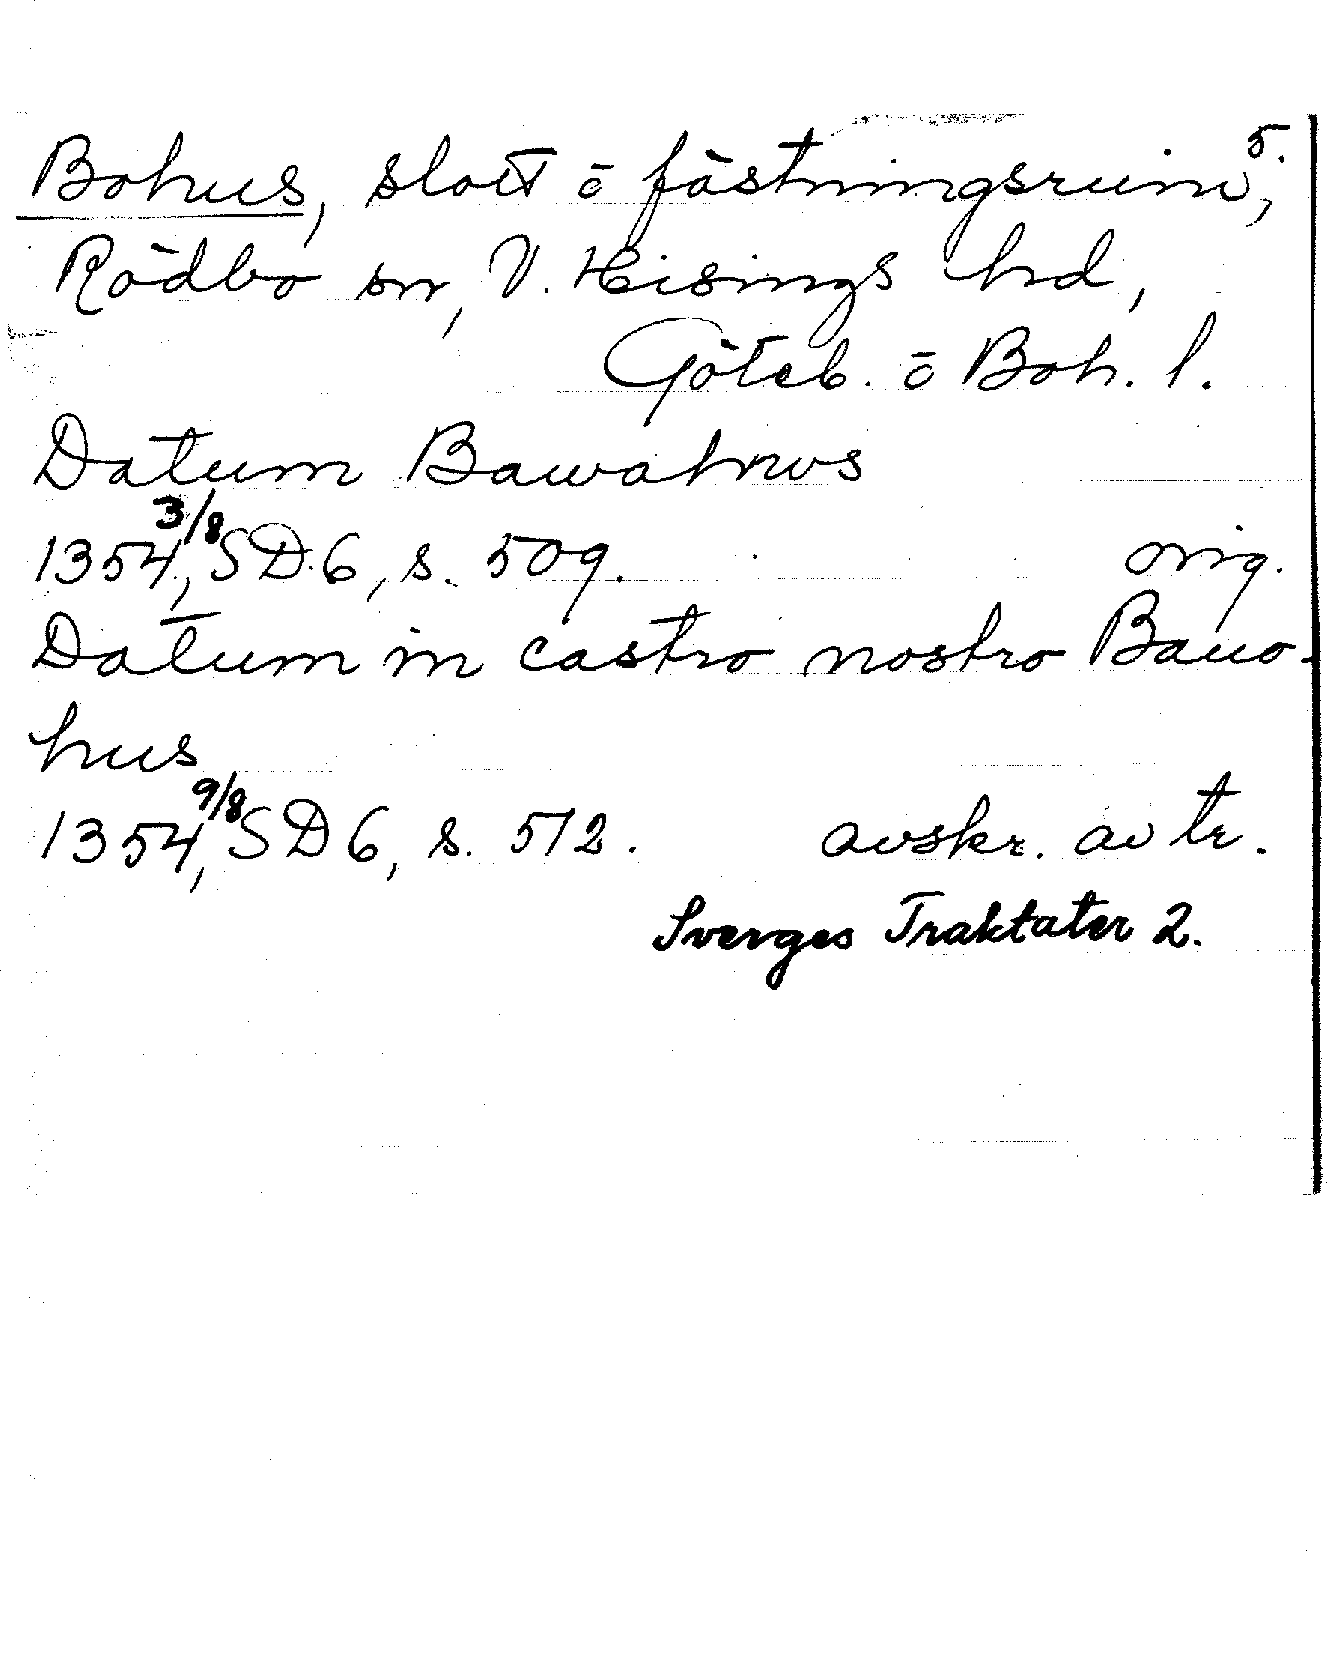 5.
Bohus, slott ō fästningsruin,
Rödbo sn, V. Hisings hd,
Göteb. ō Boh. l.
Datum Bawahws
1354 3/8, SD 6, s. 509. orig.
Datum in castro nostro Bauo-
hus
1354 9/8, SD 6, s. 512. avskr. av tr.
Sverges Traktater 2.